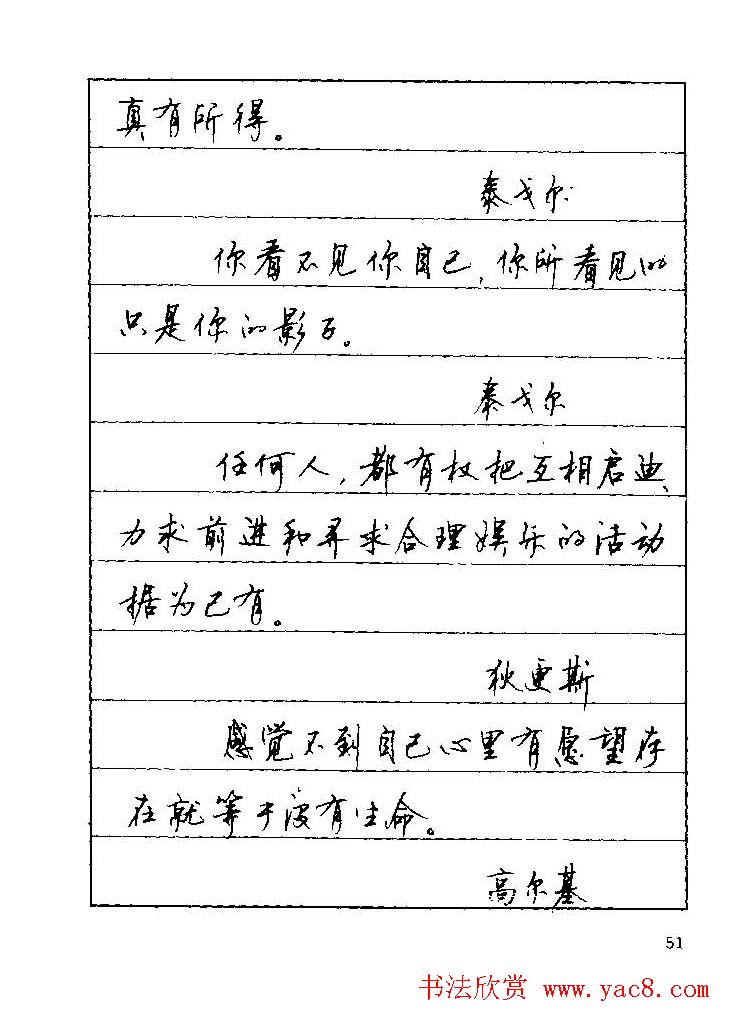 真有所得。
泰戈尔
你看不见你自己，你所看见的
只是你的影子。
泰戈尔
任何人，都有权把互相启迪、
力求前进和寻求合理娱乐的活动
据为己有。
狄更斯
感觉不到自己心里有愿望存
在就等于没有生命。
高尔基
51
书法欣赏 www.yac8.com